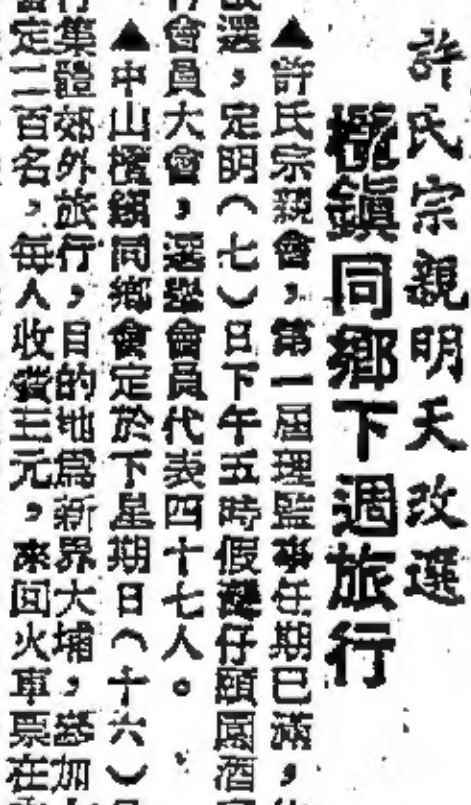 許氏宗親明天改選
欖鎮同鄉下週旅行
▲許氏宗親會，第一屆理監事任期已滿，
選，定明（七）日下午五時假灣仔頤園酒
會員大會，選舉會員代表四十七人。
▲中山欖鎮同鄉會定於下星期日（十六）
集體郊外旅行，目的地為新界大埔，參加
定二百名，每人收費三元，來回火車票在